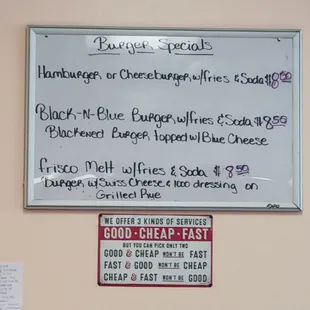 Burger Specials
Hamburger or Cheeseburger w/fries & Soda $8.50
Black-N-Blue Burger w/fries & Soda $8.50
Blackened Burger topped w/Blue Cheese
frisco Melt w/fries & Soda $8.50
Burger w/Swiss Cheese & 1000 dressing on
Grilled Rye
WE OFFER 3 KINDS OF SERVICES
GOOD · CHEAP · FAST
BUT YOU CAN PICK ONLY TWO
GOOD & CHEAP WON'T BE FAST
FAST & GOOD WON'T BE CHEAP
CHEAP & FAST WON'T BE GOOD